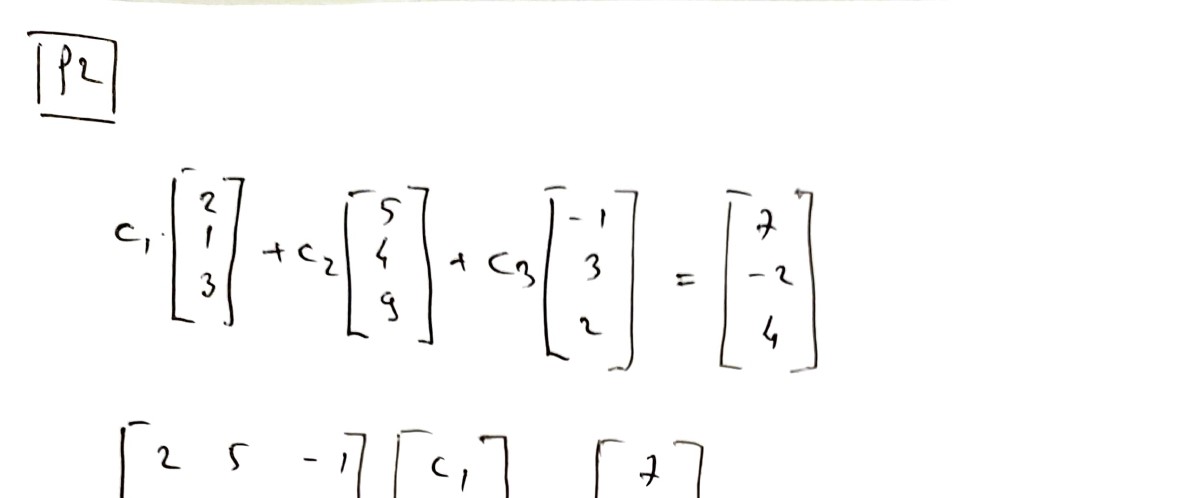 P2
c₁ [2 1 3] + c₂ [5 4 9] + c₃ [-1 3 2] = [7 -2 4]
[2 5 -1] [c₁] [7]